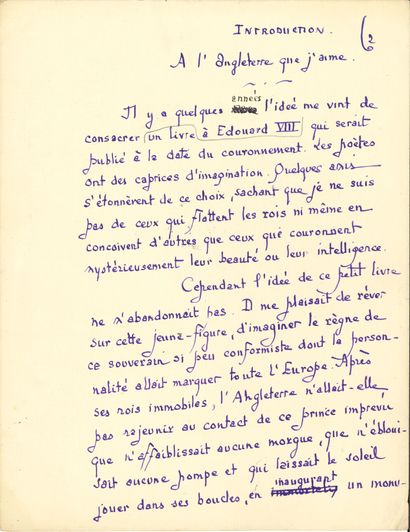 INTRODUCTION.
2
A l'Angleterre que j'aime.
années
Il y a quelques l'idée me vint de
consacrer un livre à Edouard VIII qui serait
publié à la date du couronnement. Les poètes
ont des caprices d'imagination. Quelques amis
s'étonnèrent de ce choix, sachant que je ne suis
pas de ceux qui flattent les rois ni même en
concoivent d'autres que ceux que couronnent
mystérieusement leur beauté ou leur intelligence.
Cependant l'idée de ce petit livre
ne m'abandonnait pas. Il me plaisait de rêver
sur cette jeune figure, d'imaginer le règne de
ce souverain si peu conformiste dont la person-
nalité allait marquer toute l'Europe. Après
ses rois immobiles, l'Angleterre n'allait-elle
pas rajeunir au contact de ce prince imprévu
que n'affaiblissait aucune morgue, que n'ébloui-
ssait aucune pompe et qui laissait le soleil
inaugurant
jouer dans ses boucles, en un monu-